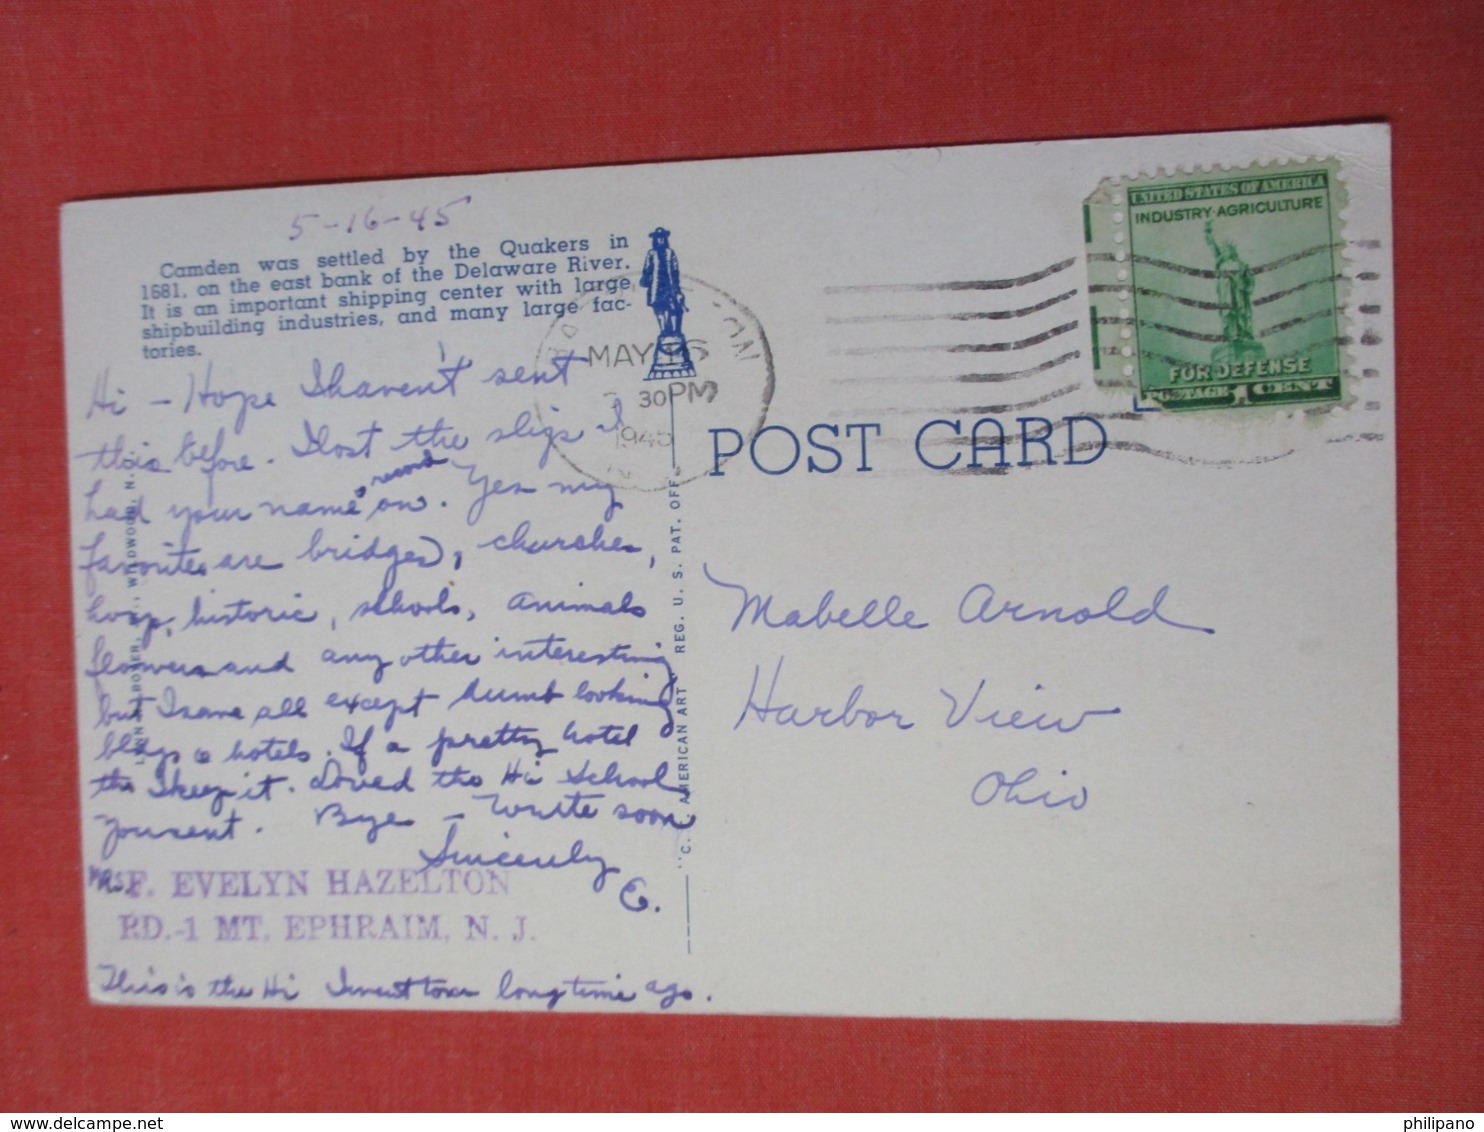 5-16-45
Camden was settled by the Quakers in
1681, on the east bank of the Delaware River.
It is an important shipping center with large
shipbuilding industries, and many large fac-
tories.
Hi - Hope I haven't sent
this before. I lost the slips I
had your name record on. Yes my
favorites are bridges, churches,
hosp, historic, schools, animals
flowers and any other interesting
but I save all except dumb looking
bldgs & hotels. If a pretty hotel
the I keep it. Loved the Hi School
you sent. Bye - Write soon
Sincerely
E.
MRS. F. EVELYN HAZELTON
RD.-1 MT. EPHRAIM, N. J.
This is the Hi I went to a long time ago.
WILDWOOD, N.
"C. AMERICAN ART REG. U. S. PAT. OFF.
MAY 16
30 PM
1945
N.J.
UNITED STATES OF AMERICA
INDUSTRY·AGRICULTURE
FOR DEFENSE
POSTAGE 1 CENT
POST CARD
Mabelle Arnold
Harbor View
Ohio
philipano